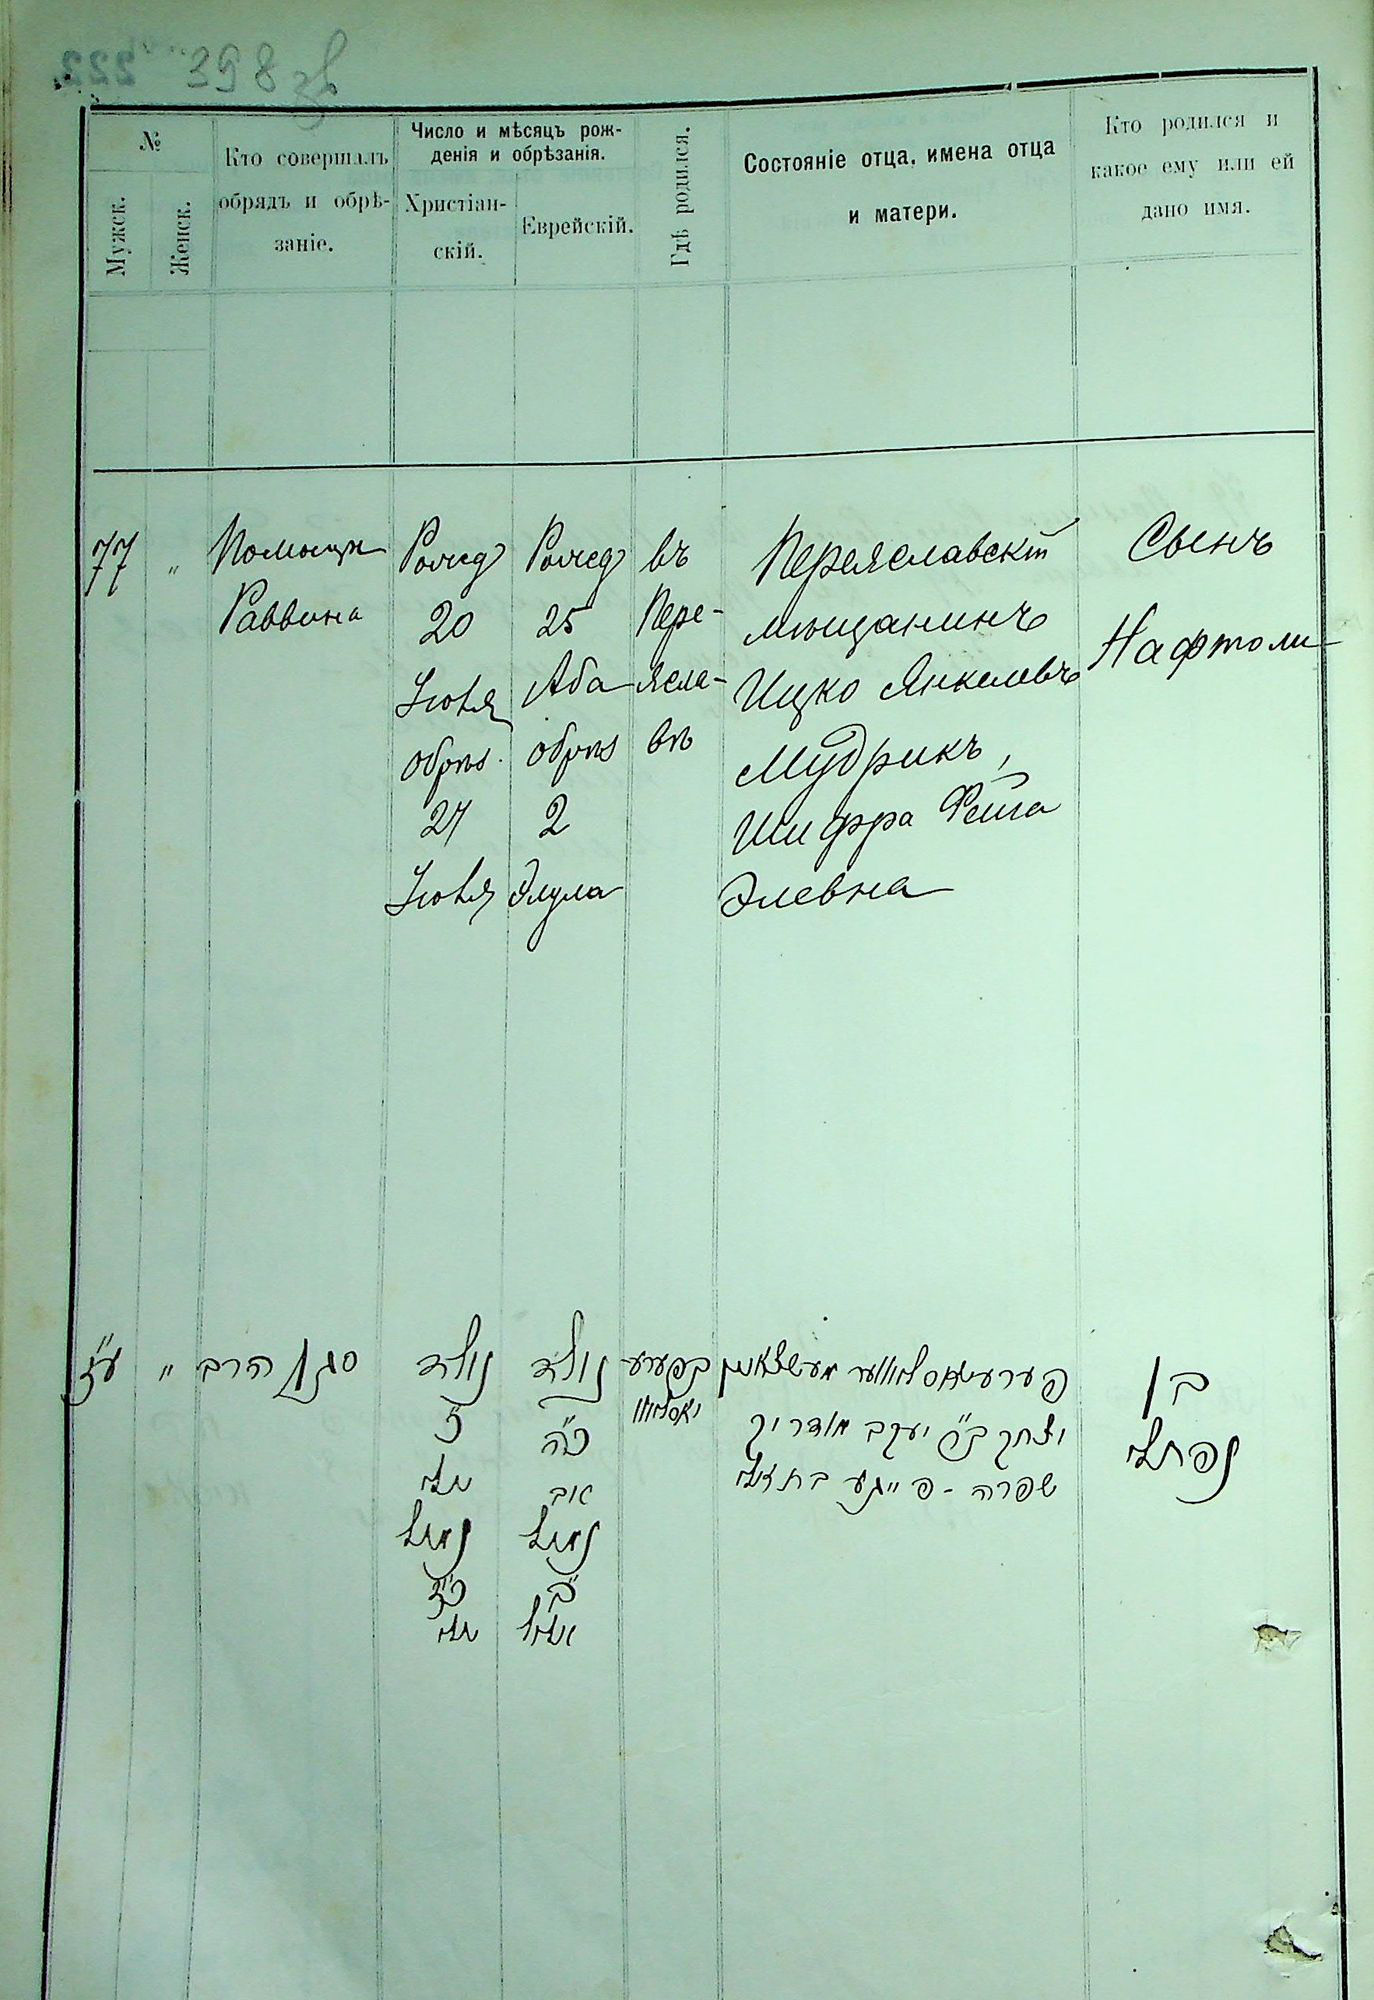 398 зв
№
Мужск.
Женск.
Кто совершалъ
обрядъ и обрѣ-
заніе.
Число и мѣсяцъ рож-
денія и обрѣзанія.
Христіан-
скій.
Еврейскій.
Гдѣ родился.
Состояніе отца, имена отца
и матери.
Кто родился и
какое ему или ей
дано имя.
77
"
Помощн
Раввина
Рожд
20
Іюля
обрѣз.
27
Іюля
Рожд
25
Аба
обрѣз
2
Элула
въ
Пере-
ясла-
вѣ
Переяславскій
мѣщанинъ
Ицко Янкелевъ
Мудрикъ,
Шифра Фейга
Элевна
Сынъ
Нафтоли
ע"ז
"
סגן הרב
נולד
כ'
יולי
נמול
כ"ז
יולי
נולד
כ"ה
אב
נמול
ב'
אלול
בפערע
יאסלאוו
פערעיאסלאווער מעשצאנין
יצחק ב"ר יעקב מודריק
שפרה - פייגע בת אלי
בן
נפתלי